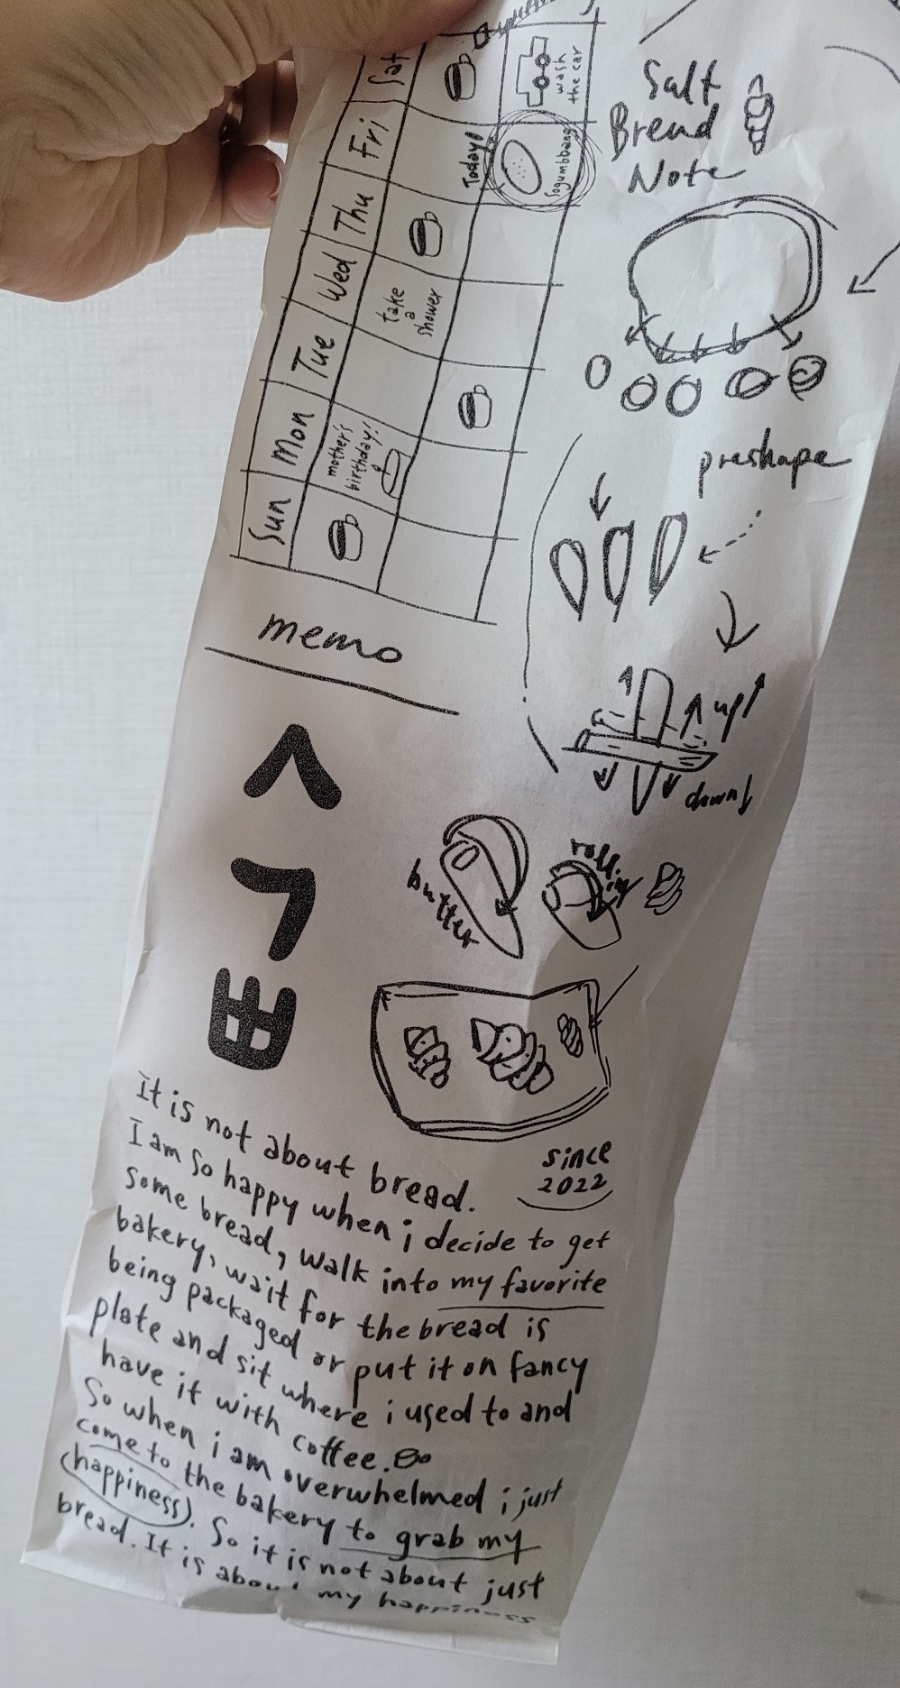 Sun Mon Tue Wed Thu Fri Sat
mother's
birthday!
take
a
shower
Today!
Sogumbbang
wash
the car
Salt
Bread
Note
preshape
up↑
down↓
butter
rolling
memo
since
2022
It is not about bread.
I am so happy when i decide to get
some bread, walk into my favorite
bakery, wait for the bread is
being packaged or put it on fancy
plate and sit where i used to and
have it with coffee.
So when i am overwhelmed i just
come to the bakery to grab my
(happiness). So it is not about just
bread. It is about my happiness